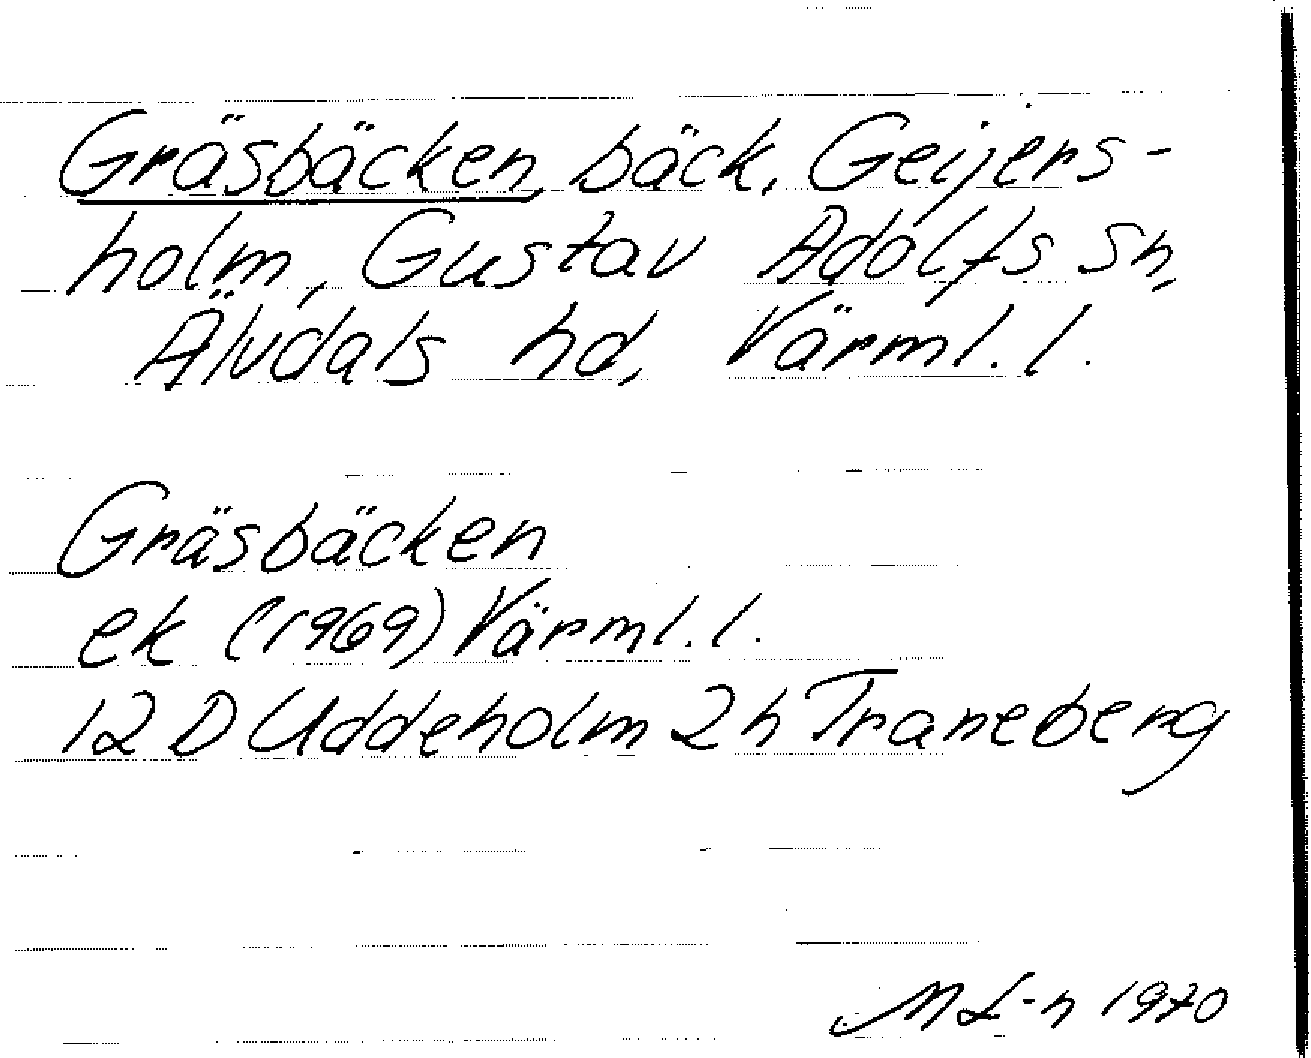 Gräsbäcken, bäck, Geijers-
holm, Gustav Adolfs sn,
Älvdals hd, Värml. l.
Gräsbäcken
ek (1969) Värml. l.
12 D Uddeholm 2h Traneberg
M L-n 1970